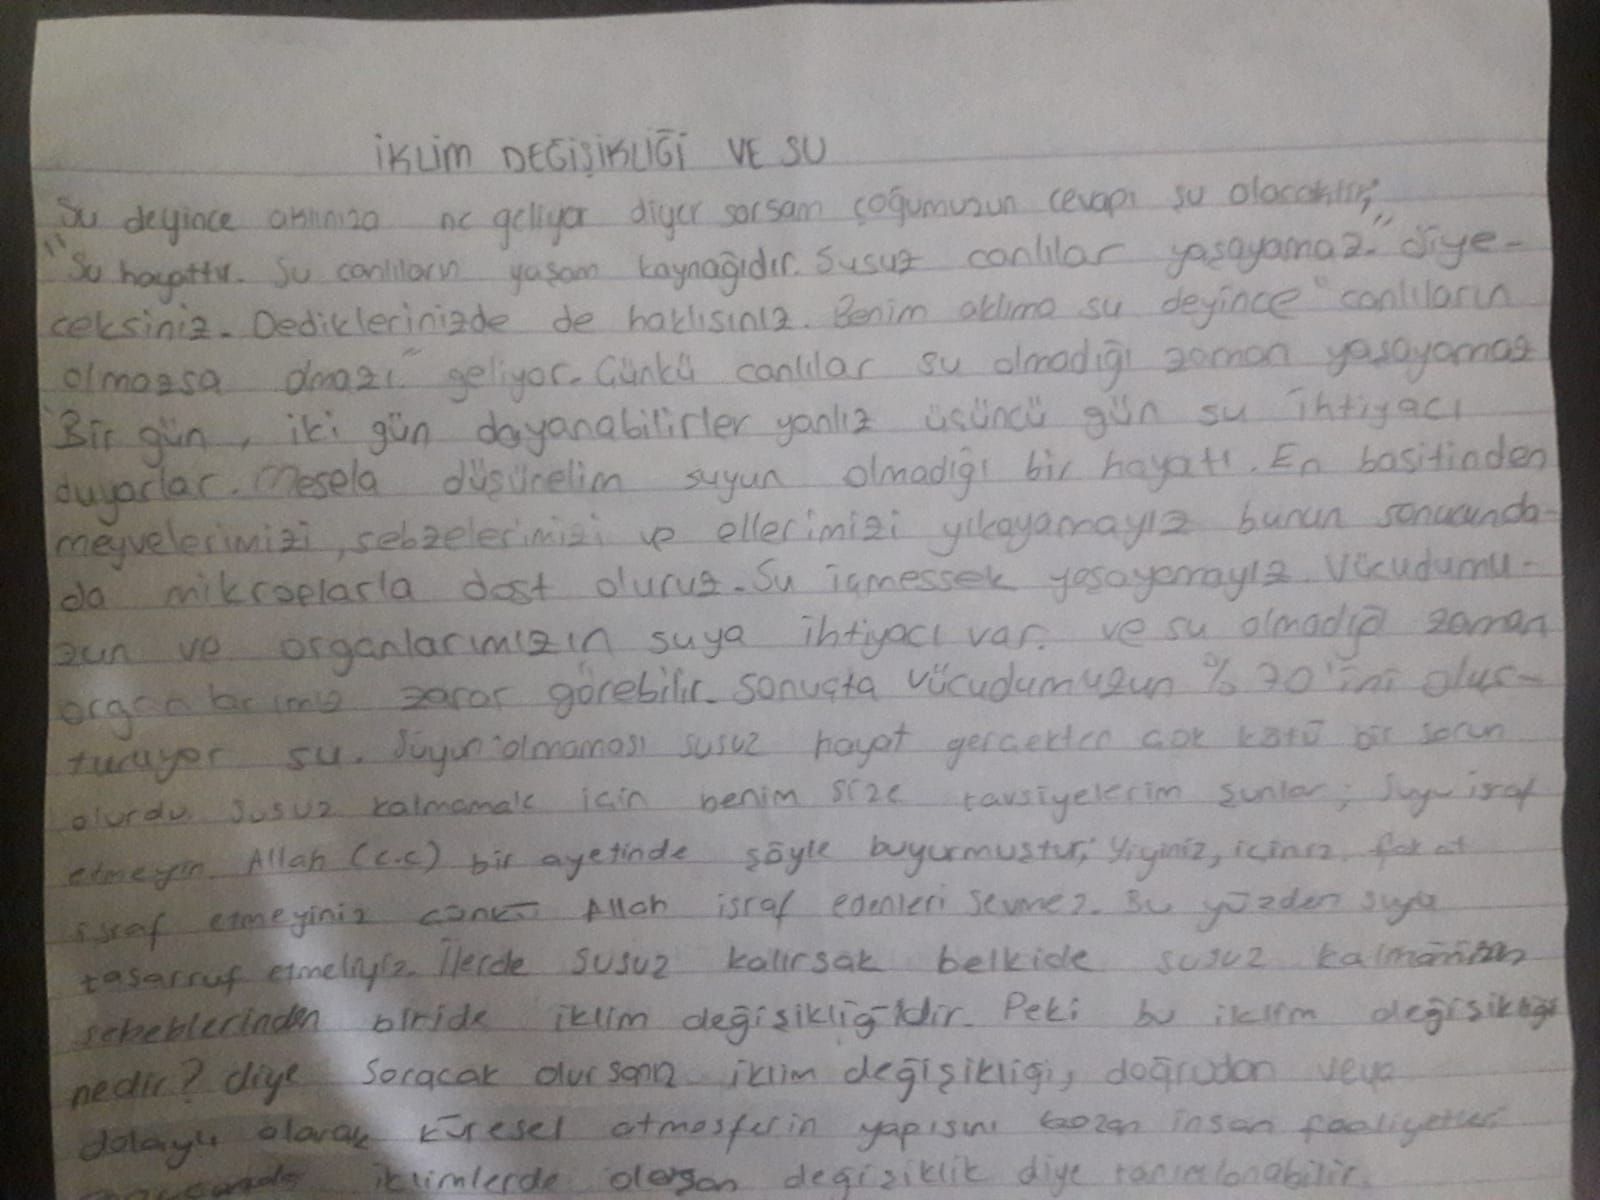 İKLİM DEĞİŞİKLİĞİ VE SU
Su deyince aklınıza ne geliyor diyer sorsam çoğumuzun cevapı su olacaktır;
"Su hayattır. Su canlıların yaşam kaynağıdır. Susuz canlılar yaşayamaz." diye-
ceksiniz. Dediklerinizde de haklısınız. Benim aklıma su deyince "canlıların
olmazsa olmazı" geliyor. Çünkü canlılar su olmadığı zaman yaşayamaz
Bir gün, iki gün dayanabilirler yanlız üçüncü gün su ihtiyacı
duyarlar. Mesela düşünelim suyun olmadığı bir hayatı. En basitinden
meyvelerimizi, sebzelerimizi ve ellerimizi yıkayamayız bunun sonucunda-
da mikroplarla dost oluruz. Su içmessek yaşayamayız. Vücudumu-
zun ve organlarımızın suya ihtiyacı var. ve su olmadığı zaman
organlarımız zarar görebilir. Sonuçta vücudumuzun %70'ini oluş-
turuyor su. Suyun olmaması susuz hayat gerçekten çok kötü bir sorun
olurdu. Susuz kalmamak için benim size tavsiyelerim şunlar; Suyu israf
etmeyin. Allah (c.c) bir ayetinde şöyle buyurmuştur; Yiyiniz, içiniz fakat
israf etmeyiniz çünkü Allah israf edenleri sevmez. Bu yüzden suyu
tasarruf etmeliyiz. İlerde susuz kalırsak belkide susuz kalmanızın
sebeblerinden biride iklim değişikliğidir. Peki bu iklim değişikliği
nedir? diye soracak olursanız iklim değişikliği, doğrudan veya
dolaylı olarak küresel atmosferin yapısını bozan insan faaliyetleri
iklimlerde oluşan değişiklik diye tanımlanabilir.